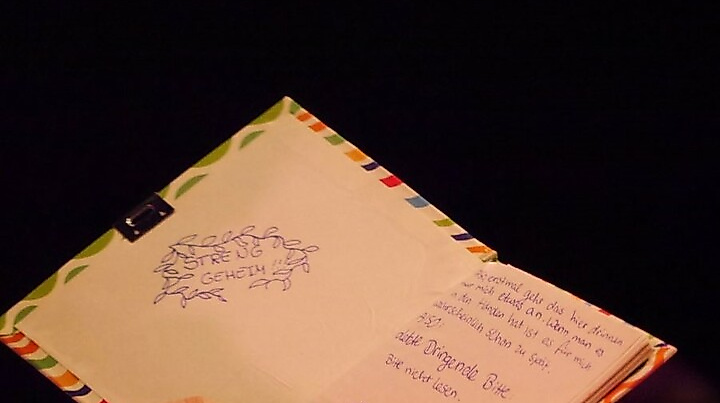 STRENG
GEHEIM!!!
erstmal geht das hier drinnen
nur mich etwas an. Wenn man es
in den Händen hat ist es für mich
wahrscheinlich schon zu spät.
Also:
Dringende Bitte:
Bitte nicht lesen.